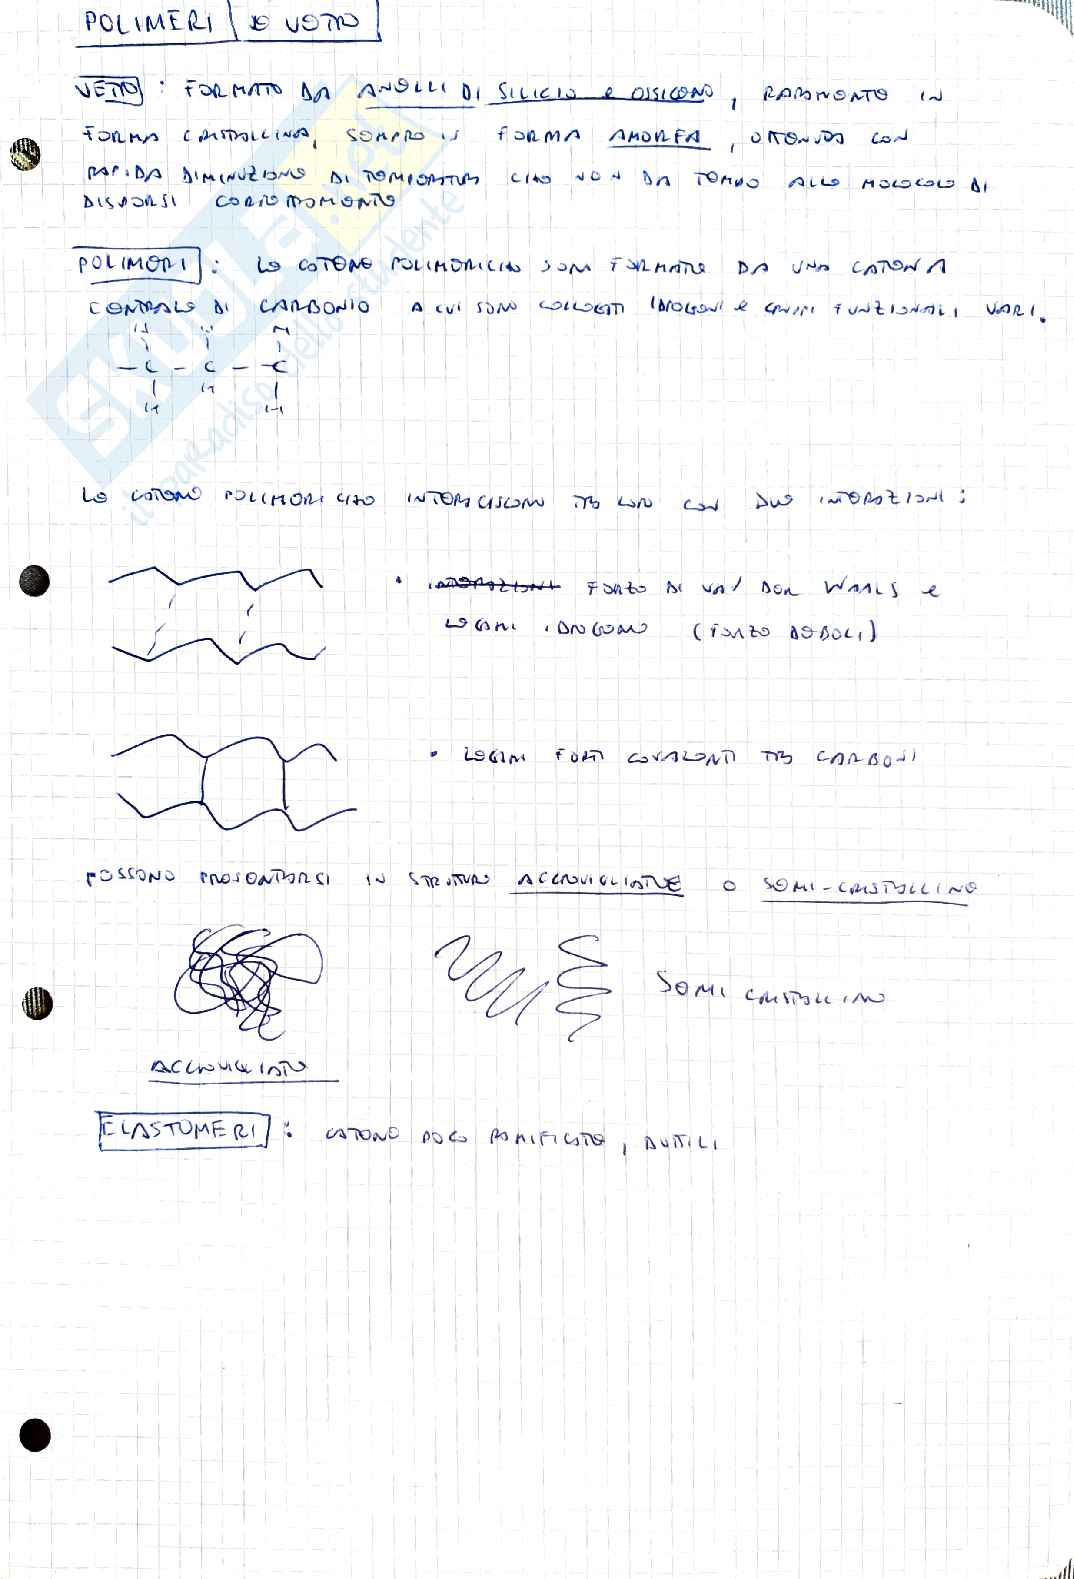 POLIMERI e VETRO
VETRO : FORMATO DA ANELLI DI SILICIO e OSSIGENO, RARAMENTE IN
FORMA CRISTALLINA, SEMPRE IN FORMA AMORFA, OTTENUTA CON
RAPIDA DIMINUZIONE DI TEMPERATURA CHE NON DA TEMPO ALLE MOLECOLE DI
DISPORSI CORRETTAMENTE
POLIMERI : LE CATENE POLIMERICHE SONO FORMATE DA UNA CATENA
CENTRALE DI CARBONIO A CUI SONO COLLEGATI IDROGENI e GRUPPI FUNZIONALI VARI.
H H H
- C - C - C
H H H
LE CATENE POLIMERICHE INTERAGISCONO TRA LORO CON DUE INTERAZIONI :
• INTERAZIONI FORZE DI VAN DER WAALS e
LEGAMI IDROGENO (FORZE DEBOLI)
• LEGAMI FORTI COVALENTI TRA CARBONI
POSSONO PRESENTARSI IN STRUTTURE AGGROVIGLIATE O SEMI-CRISTALLINE
SEMI CRISTALLINO
AGGROVIGLIATO
ELASTOMERI : CATENE POCO RAMIFICATE, DUTTILI
SKUOLA.net
il paradiso dello studente